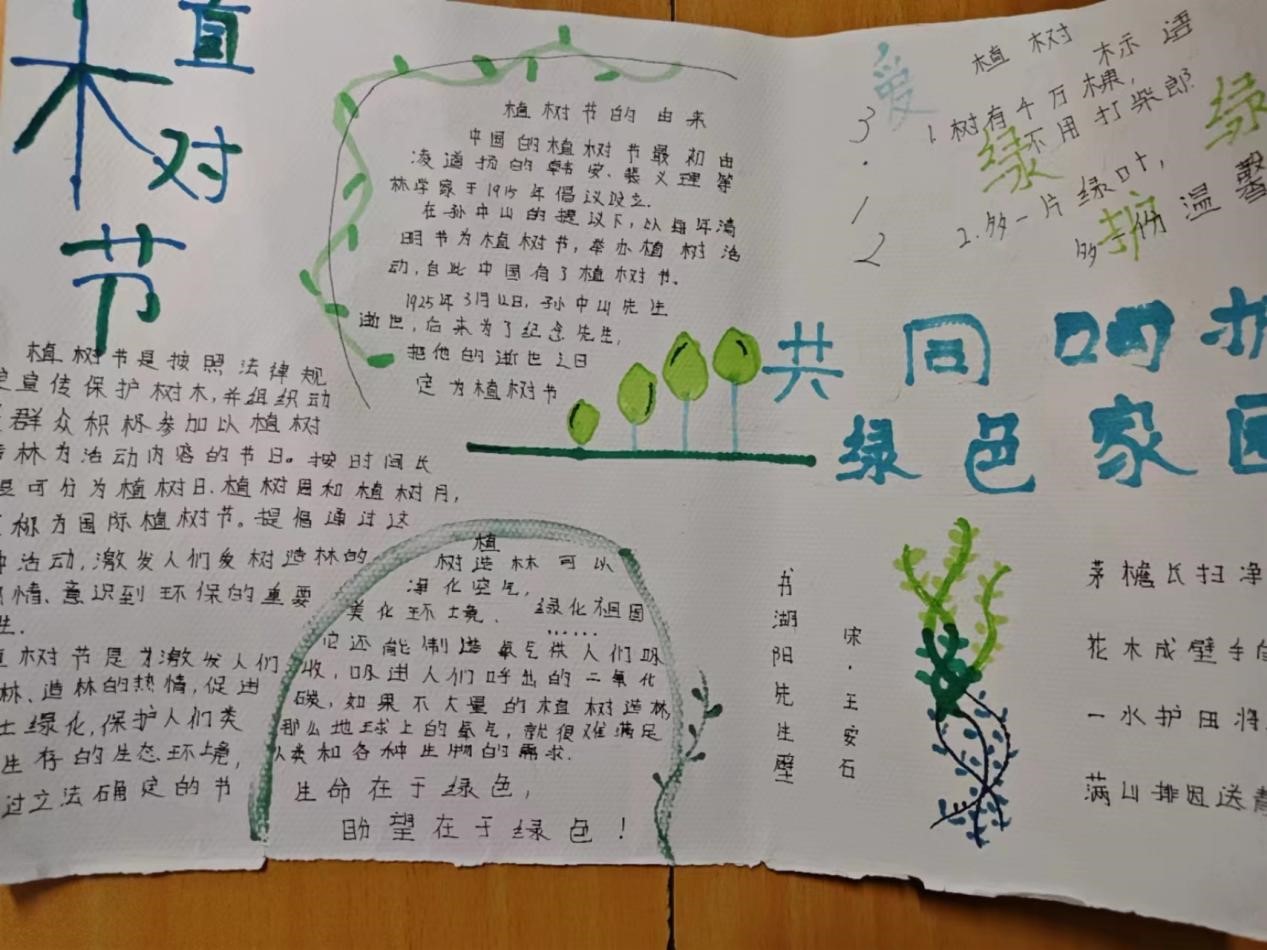 植
树
节
植树节的由来
中国的植树节最初由
凌道扬的韩安、裴义理等
林学家于1915年倡议设立.
在孙中山的提议下,以每年清
明节为植树节,举办植树活
动,自此中国有了植树节。
1925年3月12日,孙中山先生
逝世,后来为了纪念先生,
把他的逝世之日
定为植树节
植树节是按照法律规
定宣传保护树木,并组织动
群众积极参加以植树
林为活动内容的节日。按时间长
可分为植树日、植树周和植树月,
称为国际植树节。提倡通过这
种活动,激发人们爱树造林的
情、意识到环保的重要
性.
植树节是为激发人们
林、造林的热情,促进
土绿化,保护人们类
生存的生态环境,
过立法确定的节
植
树造林可以
净化空气,
美化环境、绿化祖国
......
它还能制造氧气供人们吸
收,吸进人们呼出的二氧化
碳,如果不大量的植树造林,
那么地球上的氧气,就很难满足
人类和各种生物的需求.
生命在于绿色,
盼望在于绿色!
植树标语
1.树有千万棵,
不用打柴郎.
2.多一片绿叶,
多一份温馨
爱
绿
护
绿
3
·
1
2
共同呵护
绿色家园
书湖阳先生壁
宋·王安石
茅檐长扫净
花木成壁手自
一水护田将
满山排因送青